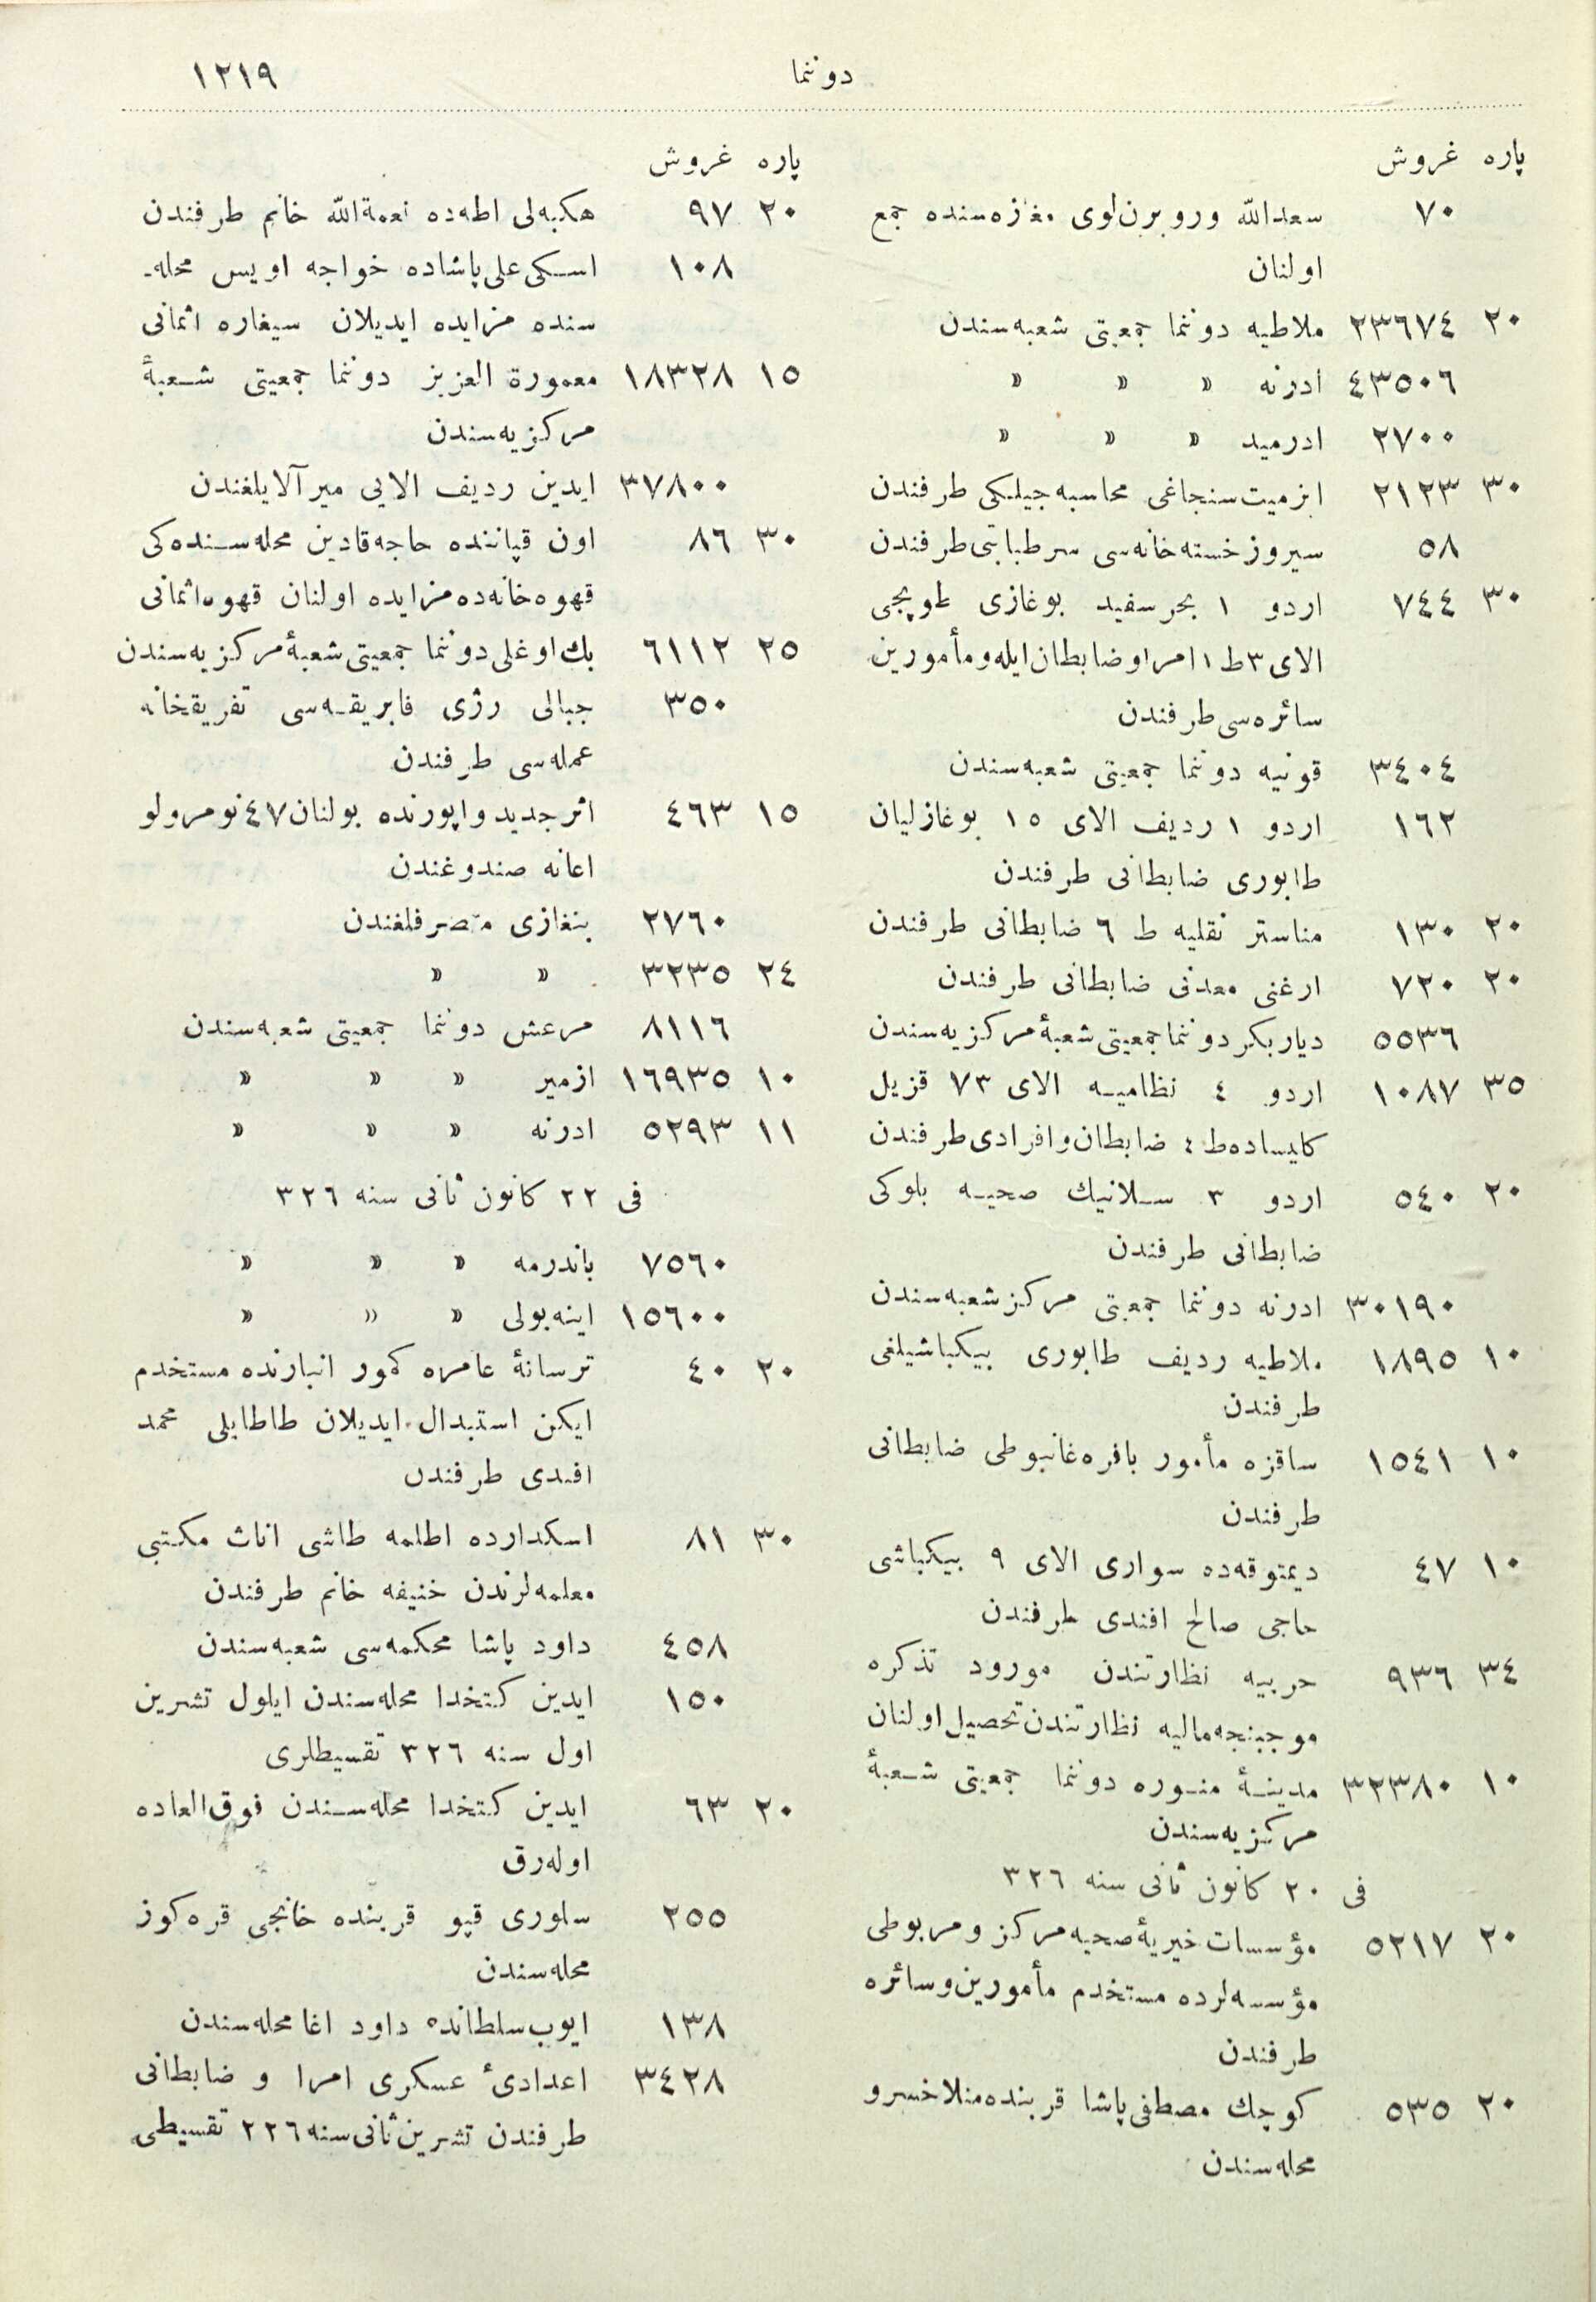 دوننما ١٢١٩
پاره غروش
٧٠ سعدالله وروبرن‌لوی مغازه‌سنده جمع
اولنان
٢٠ ٢٣٦٧٤ ملاطیه دوننما جمعیتی شعبه‌سندن
٤٣٥٠٦ ادرنه » » »
٢٧٠٠ ادرمید » » »
٣٠ ٢١٢٣ ازمیت سنجاغی محاسبه‌جیلکی طرفندن
٥٨ سیروز خسته‌خانه‌سی سرطبابتی طرفندن
٣٠ ٧٤٤ اردو ١ بحرسفید بوغازی طوپجی
الای ٣ ط ١ امرا و ضابطان ایله و مأمورین
سائره‌سی طرفندن
٣٤٠٤ قونیه دوننما جمعیتی شعبه‌سندن
١٦٢ اردو ١ ردیف الای ١٥ بوغازلیان
طابوری ضابطانی طرفندن
٢٠ ١٣٠ مناستر نقلیه ط ٦ ضابطانی طرفندن
٢٠ ٧٢٠ ارغنی معدنی ضابطانی طرفندن
٥٥٣٦ دیاربکر دوننما جمعیتی شعبهٔ مرکزیه‌سندن
٣٥ ١٠٨٧ اردو ٤ نظامیه الای ٧٣ قزیل
کلیساده ط ٤ ضابطان و افرادی طرفندن
٢٠ ٥٤٠ اردو ٣ سلانیك صحیه بلوکی
ضابطانی طرفندن
٣٠١٩٠ ادرنه دوننما جمعیتی مرکز شعبه‌سندن
١٠ ١٨٩٥ ملاطیه ردیف طابوری بیکباشیلغی
طرفندن
١٠ ١٥٤١ ساقزه مأمور بافره غانبوطی ضابطانی
طرفندن
١٠ ٤٧ دیمتوقه‌ده سواری الای ٩ بیکباشی
حاجی صالح افندی طرفندن
٣٤ ٩٣٦ حربیه نظارتندن مورود تذکره
موجبنجه مالیه نظارتندن تحصیل اولنان
١٠ ٣٢٣٨٠ مدینهٔ منوره دوننما جمعیتی شعبهٔ
مرکزیه‌سندن
فی ٢٠ کانون ثانی سنه ٣٢٦
٢٠ ٥٢١٧ مؤسسات خیریهٔ صحیه مرکز و مربوطی
مؤسسه‌لرده مستخدم مأمورین و سائره
طرفندن
٢٠ ٥٣٥ کوچك مصطفی پاشا قربنده منلا خسرو
محله‌سندن
پاره غروش
٢٠ ٩٧ هکبه‌لی اطه‌ده نعمةالله خانم طرفندن
١٠٨ اسکی علی پاشاده خواجه اویس محله‌ـ
سنده مزایده ایدیلان سیغاره اثمانی
١٥ ١٨٣٢٨ معمورة العزیز دوننما جمعیتی شعبهٔ
مرکزیه‌سندن
٣٧٨٠٠ ایدین ردیف الایی میرآلایلغندن
٣٠ ٨٦ اون قپاننده حاجه‌قادین محله‌سنده‌کی
قهوه‌خانه‌ده مزایده اولنان قهوه اثمانی
٢٥ ٦١١٢ بك اوغلی دوننما جمعیتی شعبهٔ مرکزیه‌سندن
٣٥٠ جبالی رژی فابریقه‌سی تفریقخانه
عمله‌سی طرفندن
١٥ ٤٦٣ اثر جدید واپورنده بولنان ٤٧ نومرولو
اعانه صندوغندن
٢٧٦٠ بنغازی متصرفلغندن
٢٤ ٣٢٣٥ » »
٨١١٦ مرعش دوننما جمعیتی شعبه‌سندن
١٠ ١٦٩٣٥ ازمیر » » »
١١ ٥٢٩٣ ادرنه » » »
فی ٢٢ کانون ثانی سنه ٣٢٦
٧٥٦٠ باندرمه » » »
١٥٦٠٠ اینه‌بولی » » »
٢٠ ٤٠ ترسانهٔ عامره کمور انبارنده مستخدم
ایکن استبدال ایدیلان طاطایلی محمد
افندی طرفندن
٣٠ ٨١ اسکدارده اطلمه طاشی اناث مکتبی
معلمه‌لرندن خنیفه خانم طرفندن
٤٥٨ داود پاشا محکمه‌سی شعبه‌سندن
١٥٠ ایدین کتخدا محله‌سندن ایلول تشرین
اول سنه ٣٢٦ تقسیطلری
٢٠ ٦٣ ایدین کتخدا محله‌سندن فوق‌العاده
اوله‌رق
٢٥٥ سلوری قپو قربنده خانجی قره‌کوز
محله‌سندن
١٣٨ ایوب سلطانده داود اغا محله‌سندن
٣٤٢٨ اعدادیٔ عسکری امرا و ضابطانی
طرفندن تشرین ثانی سنه ٢٢٦ تقسیطی